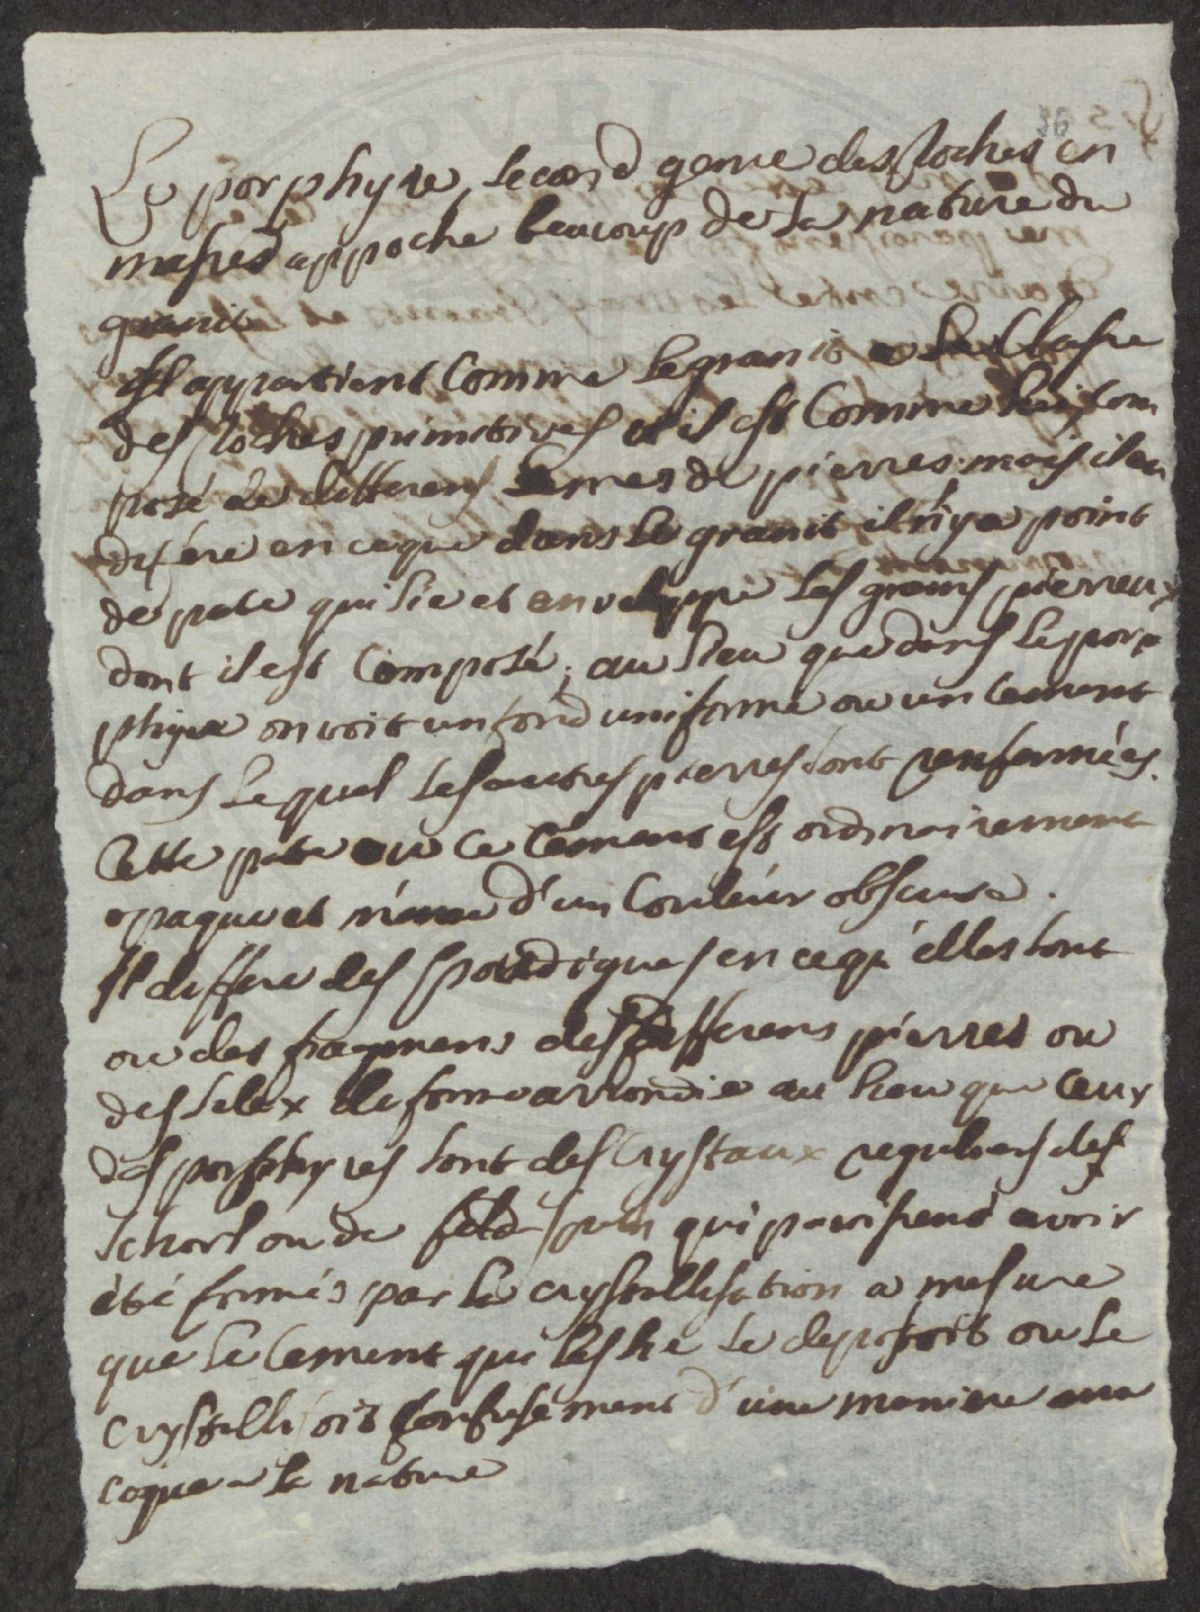 Le porphyre, second genre des Roches en
masses approche beaucoup de la nature du
granit
Il appartient Comme le granit a la Classe
des roches primitives et il est Comme luy com
posé de differens de pierres mais il en
difére en ce que dans le granit il n'ya point
de pate qui lie et enveloppe les grains pierreux
dont il est Composé, au lieu que dans le por
phyre on voit un fond uniforme ou un Cement
dans lequel les autres pierres sont renfermées.
Cette pate ou ce Cement est ordinairement
opaque et d'un Couleur obscure.
Il differe des en ce qu'elles sont
ou des fragmens des differens pierres ou
des de forme arrondie au lieu que Ceux
des porphyres sont des Crystaux reguliers des
schorl ou de feld spath qui paroissent avoir
été formés par la crystallisation a mesure
que le Cement qui les lie se deposoit ou se
Crystallisoit Confusément d'une maniere
a la nature